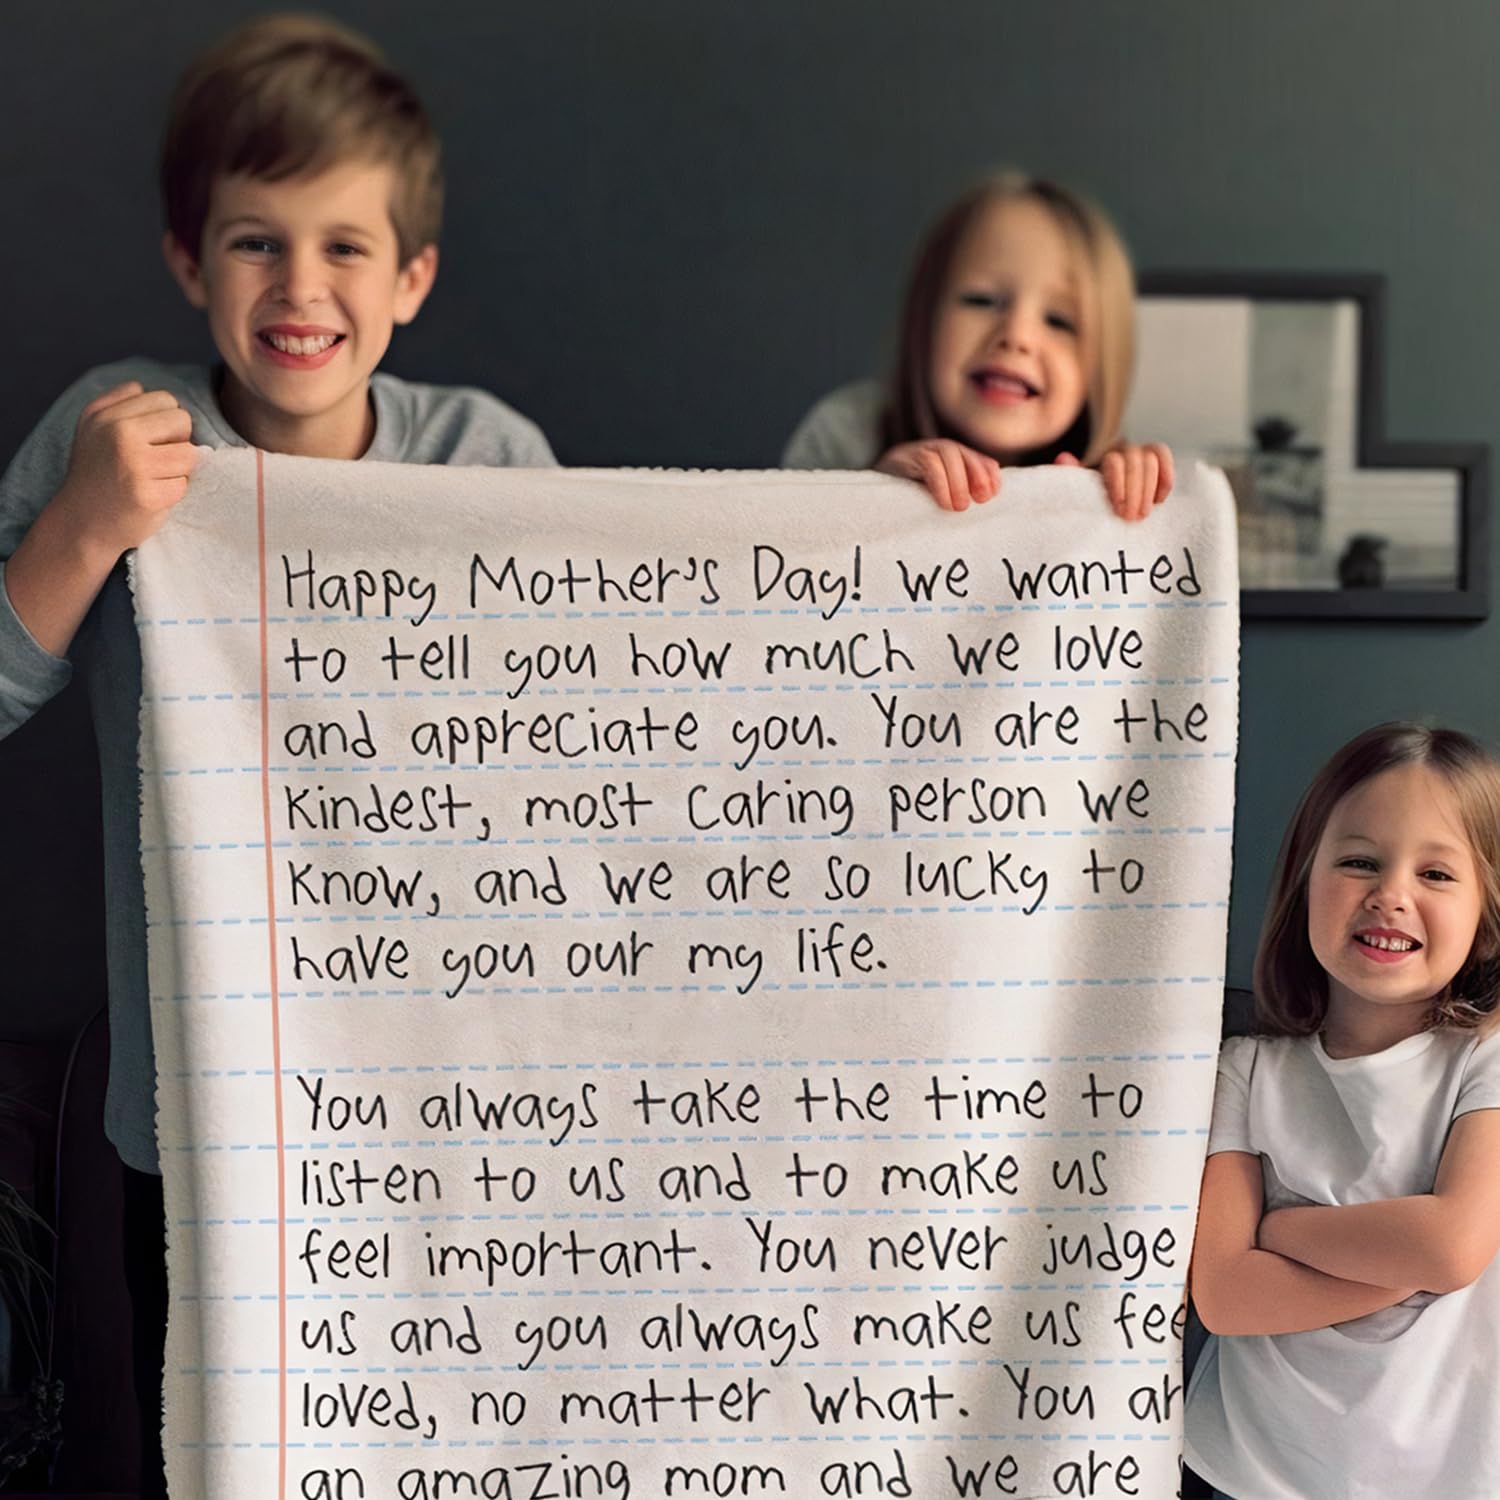 Happy Mother's Day! We wanted
to tell you how much we love
and appreciate you. You are the
kindest, most caring person we
know, and we are so lucky to
have you our my life.
You always take the time to
listen to us and to make us
feel important. You never judge
us and you always make us fee
loved, no matter what. You ar
an amazing mom and we are